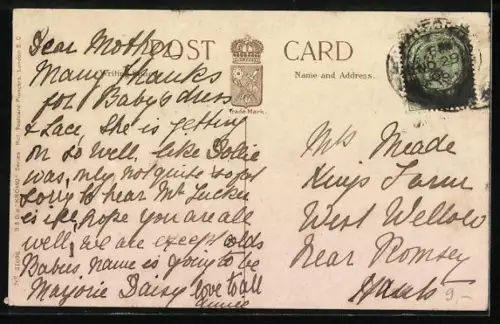 POST CARD
Writing Space
Name and Address.
Trade Mark.
Dear Mother
Many thanks
for Babys dress
& Lace, She is getting
on so well, like Dollie
was, only not quite so fat
Sorry to hear Mr Tucker
is ill, hope you are all
well, we are except colds
Babies, name is going to be
Marjorie Daisy love to all
Annie
Mrs Meade
Kings Farm
West Wellow
Near Romsey
Hants
9.-
NO 29